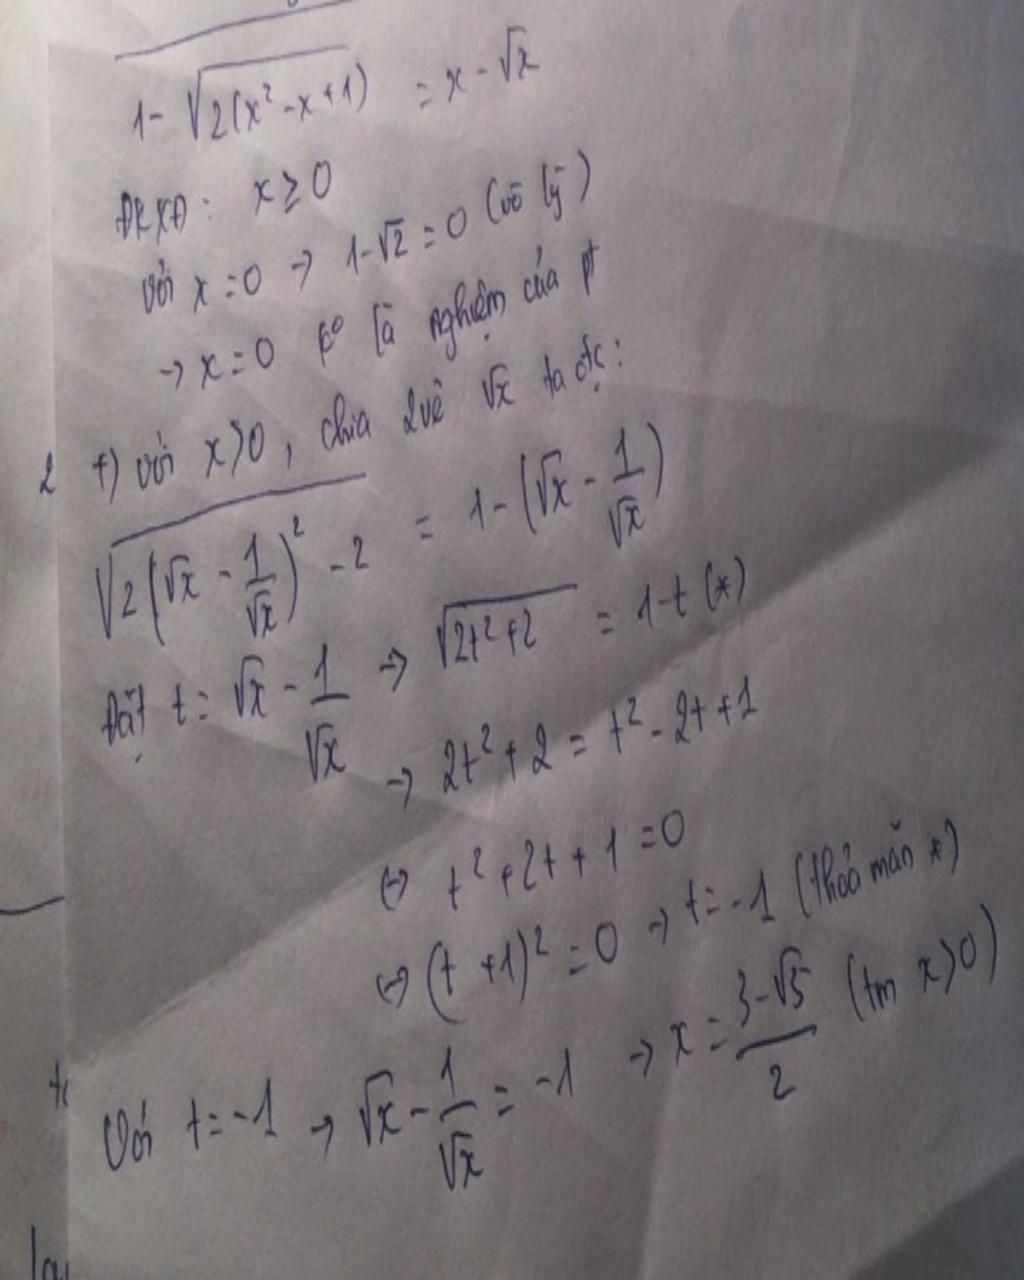 1-√2(x²-x+1) = x-√x
ĐKXĐ: x≥0
Với x=0 → 1-√2=0 (vô lý)
→ x=0 k° là nghiệm của pt
2 +) với x>0, chia 2 vế √x ta đc:
√2(√x - 1/√x)² - 2 = 1-(√x - 1/√x)
Đặt t= √x - 1/√x → √2t²+2 = 1-t (*)
→ 2t²+2 = t²-2t+1
⇔ t²+2t+1=0
⇔ (t+1)²=0 → t=-1 (thỏa mãn *)
Với t=-1 → √x - 1/√x = -1 → x= 3-√5/2 (tm x>0)